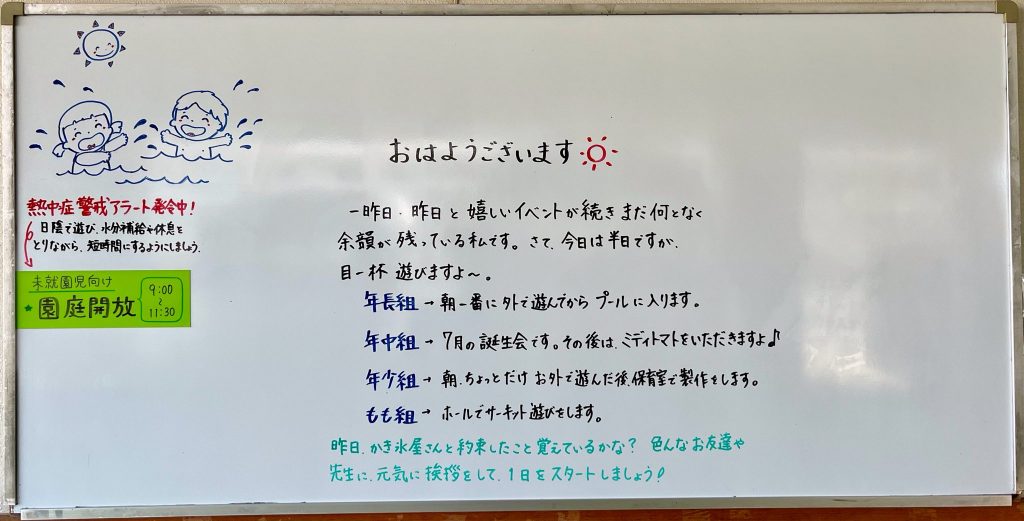 おはようございます
一昨日、昨日と嬉しいイベントが続きまだ何となく
余韻が残っている私です。さて、今日は半日ですが、
目一杯遊びますよ～。
年長組→朝一番に外で遊んでからプールに入ります。
年中組→7月の誕生会です。その後は、ミディトマトをいただきますよ♪
年少組→朝、ちょっとだけお外で遊んだ後、保育室で製作をします。
もも組→ホールでサーキット遊びをします。
昨日、かき氷屋さんと約束したこと覚えているかな？ 色んなお友達や
先生に、元気に挨拶をして、1日をスタートしましょう！
熱中症警戒アラート発令中！
日陰で遊び、水分補給や休息を
とりながら、短時間にするようにしましょう。
未就園児向け
★園庭開放
9:00
～
11:30